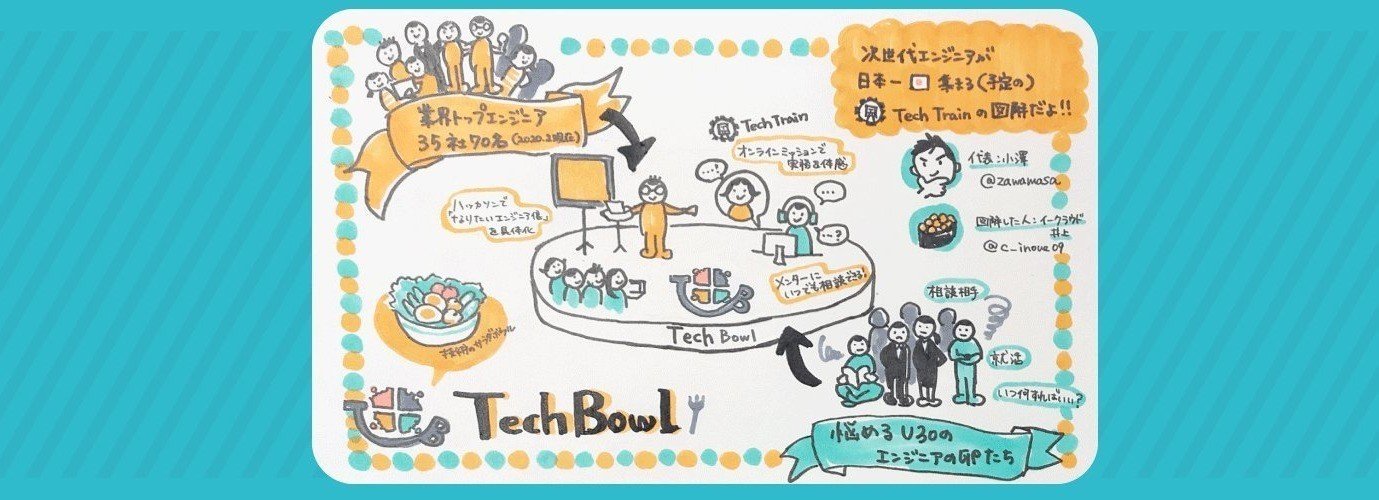 業界トップエンジニア
35社70名(2020.2現在)
次世代エンジニアが
日本一 集まる(予定の)
Tech Trainの図解だよ!!
代表:小澤
@zawamasa
図解した人:イークラウド
井上
@c_inoue09
Tech Train
オンラインミッションで
実務を体感
ハッカソンで
「なりたいエンジニア像」
を具体化
メンターに
いつでも相談できる!
TB
Tech Bowl
技術のサラダボウル
相談相手
就活
いつ何すればいい?
TB
TechBowl
悩めるU30の
エンジニアの卵たち